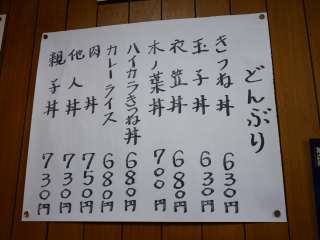 どんぶり
きつね丼 630円
玉子丼 630円
衣笠丼 680円
木ノ葉丼 700円
ハイカラきつね丼 680円
カレーライス 680円
肉丼 750円
他人丼 730円
親子丼 730円